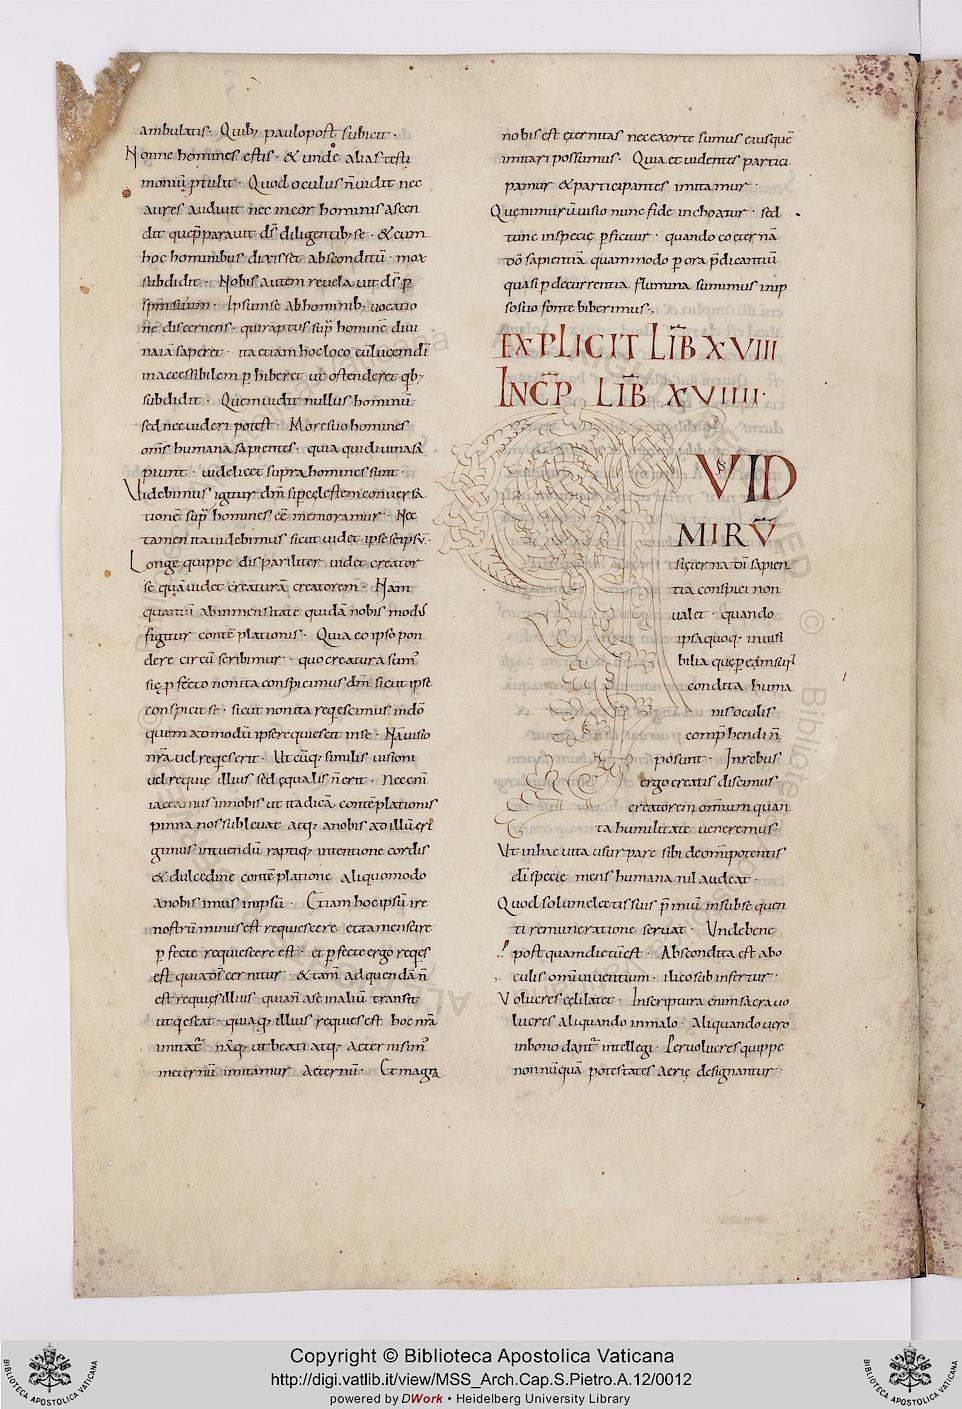 ambulatis. Quib; paulopost subicit.
Nonne homines estis. & unde alias testi
moniū ꝑtulit. Quod oculus n̄ uidit nec
aures audiuit nec in cor hominis ascen
dit quę p̄parauit dS̄ diligentib; se. & cum
hoc hominibus dixisset absconditū. mox
subdidit. Nobis autem reuelauit dS̄ ꝑ
spm̄ suum. Ipsum se ab hominib; uocatio
ne discernens. qui raptus sup̄ hominē diui
na iā saperet. ita etiam hoc loco cū lucem dī
inaccessibilem ꝑhiberet ut ostenderet qb;
subdidit. Quem uidit nullus hominū.
sed nec uideri potest. More suo homines
om̄s humana sapientes. quia qui diuina sa
piunt. uidelicet supra homines sunt.
Uidebimus igitur dm̄ si ꝑ cęlestem conuersa
tionē sup̄ homines eē memoramur. Nec
tamen ita uidebimus sicut uidet ipse se ipsū.
Longe quippe dispariliter uidet creator
se quā uidet creaturā creatorem. Nam
quantū ab inmensitate quidā nobis modS̄
figitur contēplationis. Quia eo ipso pon
dere circūscribimur. quo creatura sum'
Się ꝑfecto non ita conspicimus dm̄ sicut ipse
conspicit se. sicut non ita reqescimus in dō
quem ad modū ipse requiescit in se. Nā uisio
nr̄a uel reqes erit. Ut cūq; similis uisioni
uel requię illius sed ęqualis n̄ erit. Ne enī
iaceamus in nobis ut ita dicā contēplationis
pinna nos subleuat atq; a nobis ad illū eri
gimus intuendū raptiq; intentione cordis
& dulcedine contēplatione aliquo modo
a nobis imus in ipsū. Etiam hoc ipsū ire
nostrū minus est requiescere et tamen sic ire
ꝑfecte requiescere est. et ꝑfecte ergo reqes
est quia dS̄ cernitur. & tam̄ adquendā n̄
est requięs illius quia n̄ a se in aliū transit
ut qescat. quia q; illius requies est hoc nr̄a
imitat̄. nāq; ut beati atq; aeterni sim'
meternū imitamur aeternū. Et magna
nobis est ęternitas nec exorte sumus eius quē
imitari possumus. Quia et uidentes partici
pamur & participantes imitamur.
Quę nimirū uisio nunc fide inchoatur. sed
tunc in specię ꝑficitur. quando coęternā
dō sapientiā quam modo ꝑ ora p̄dicantiū
quasi ꝑ decurrentia flumina sumimus in ip
so suo fonte biberimus.
EXPLICIT LIB̄ XVIII
INCP̄ LIB̄ XVIIII.
QUID
MIRŪ
si ęterna dī sapien
tia conspici non
ualet. quando
ipsa quoq; inuisi
bilia quę ꝑ eā nsunt
condita huma
nis oculis
comp̄hendi n̄
possunt. In rebus
ergo creatis discimus
creatorem omnium quan
ta humilitate ueneremus.
Ut in hac uita usurpare sibi de om̄ipotentis
dī specię mens humana nil audeat.
Quod solum electis suis p̄miū in subseque n
ti remuneratione seruat. Unde bene
post quam dictū est. Abscondita est abo
culis omn̄ uiuentium. ilico subinfertur.
Uolucres cęli latet. In scriptura enim sacra uo
lucres aliquando in malo. Aliquando uero
in bono dant̄ intellegi. Per uolucres quippe
non nūquā potestates aerię designantur.
Copyright © Biblioteca Apostolica Vaticana
http://digi.vatlib.it/view/MSS_Arch.Cap.S.Pietro.A.12/0012
powered by DWork • Heidelberg University Library